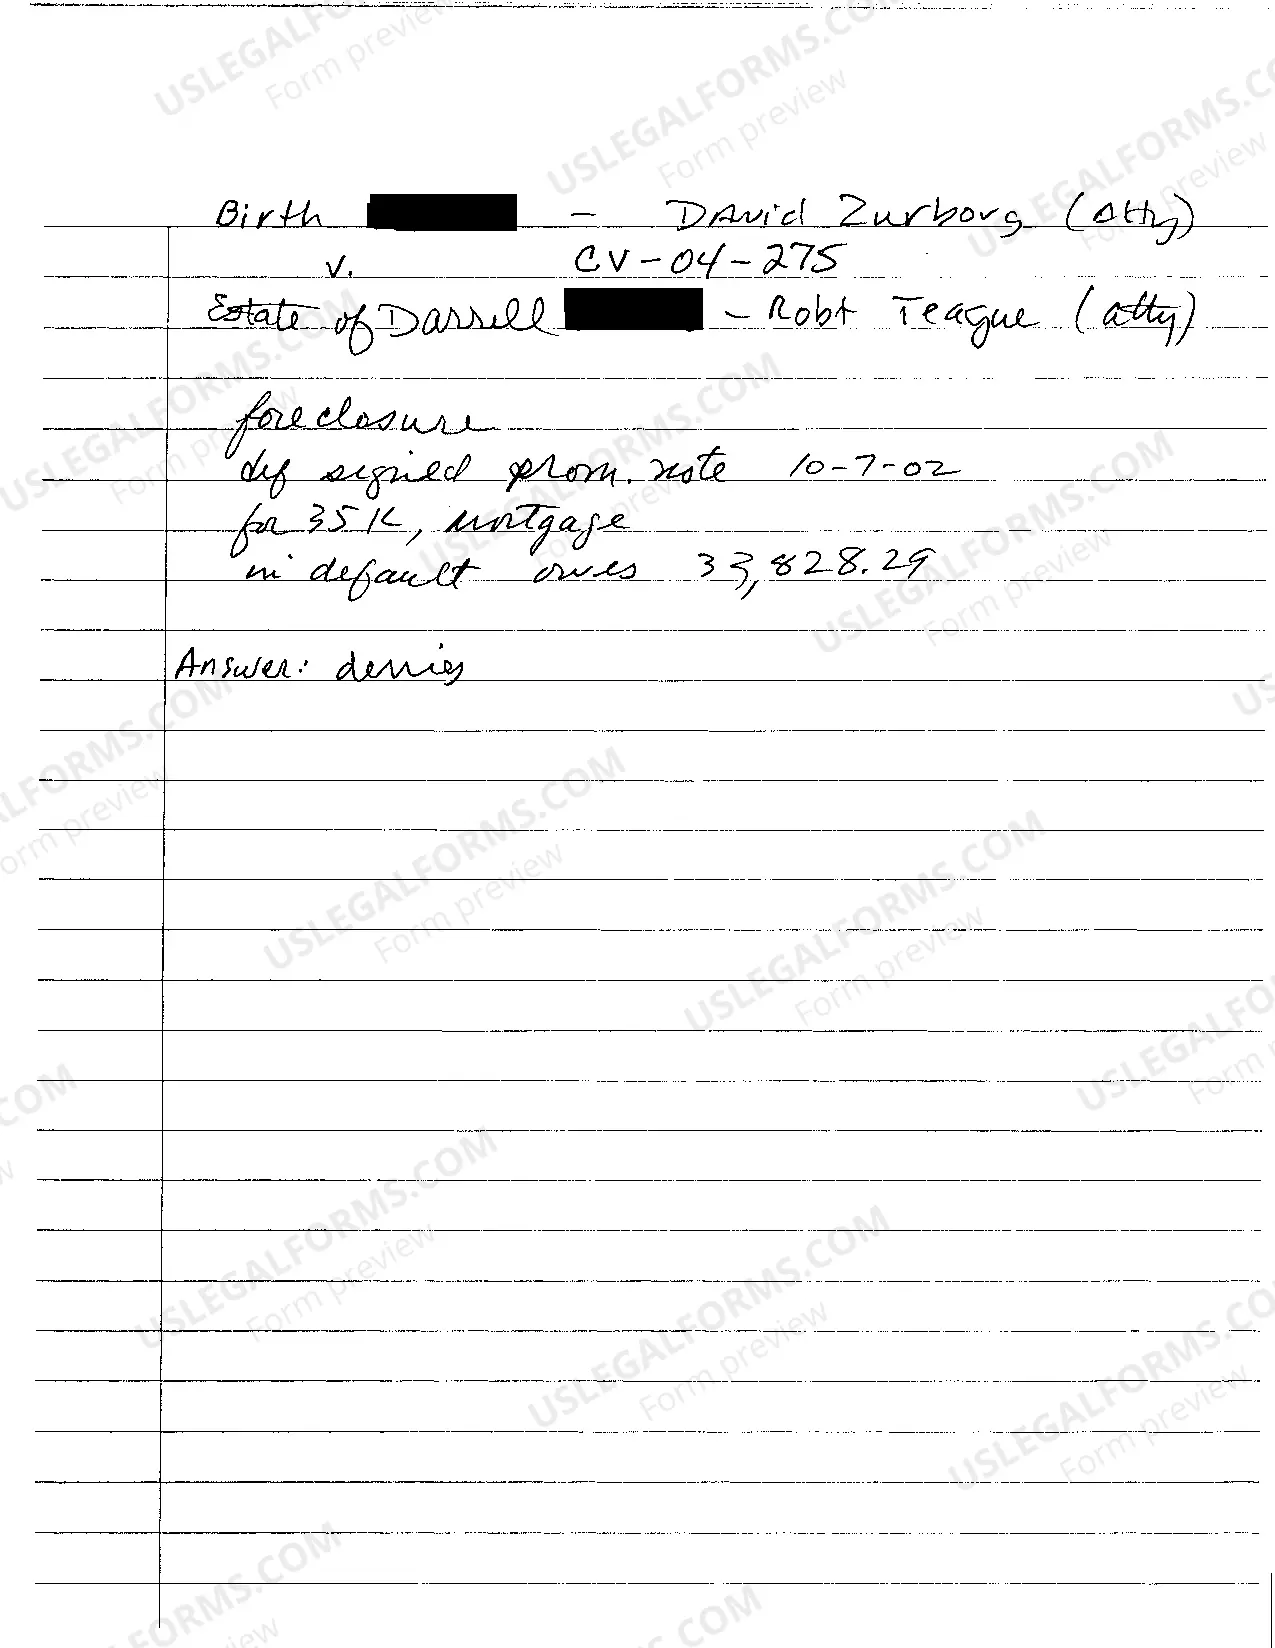 Birth - David Zurborg (atty)
v. CV-04-275
Estate of Darrell - Robt Teague (atty)
foreclosure
def signed prom. note 10-7-02
for 35K, mortgage
in default owes 33,828.29
Answer: denies
USLEGALFORMS.COM
Form preview